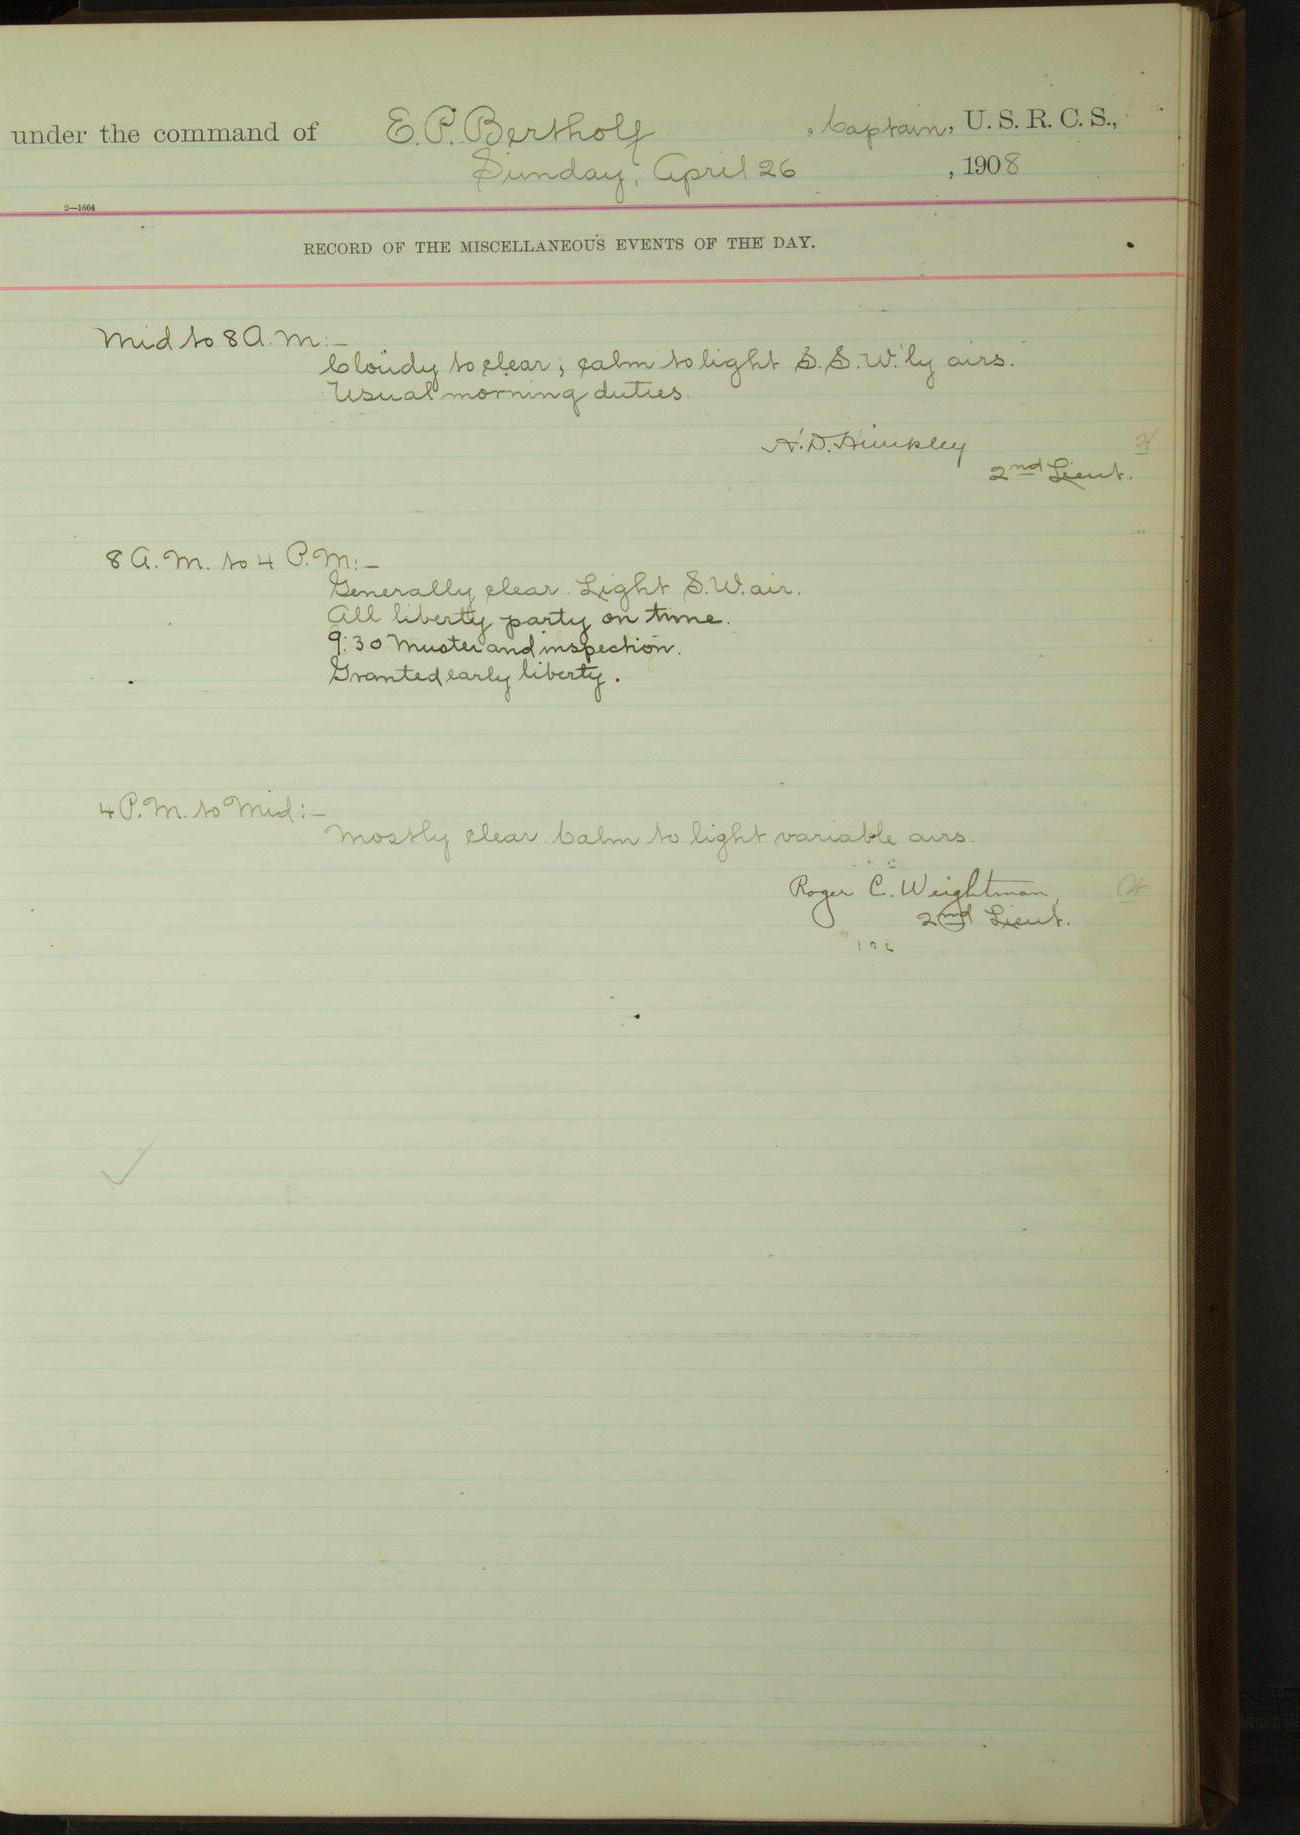 under the command of E. P. Bertholf , Captain, U. S. R. C. S.,
Sunday, April 26 , 1908
2—1664
RECORD OF THE MISCELLANEOUS EVENTS OF THE DAY.
Mid to 8 A.M:—
Cloudy to clear; calm to light S. S. W.'ly airs.
Usual morning duties.
H. D. Hinckley
2nd Lieut.
8 A.M. to 4 P.M:—
Generally clear. Light S. W. air.
All liberty party on time.
9:30 Muster and inspection.
Granted early liberty.
4 P.M. to Mid:—
Mostly clear. Calm to light variable airs.
Roger C. Weightman,
2nd Lieut.